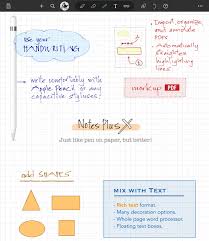 use your
HANDWRITING
• Import, organize,
and annotate
PDFs
• automatically
straighten
highlighting
lines!
markup PDF
write comfortably with
Apple Pencil or any
capacitive stylus!
Notes Plus X
Just like pen on paper, but better!
add SHAPES
MIX WITH TEXT
- Rich text format.
- Many decoration options.
- Whole page word processor.
- Floating text boxes.